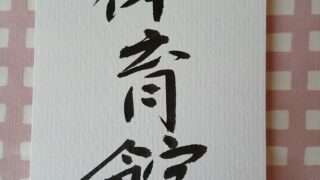 体育館